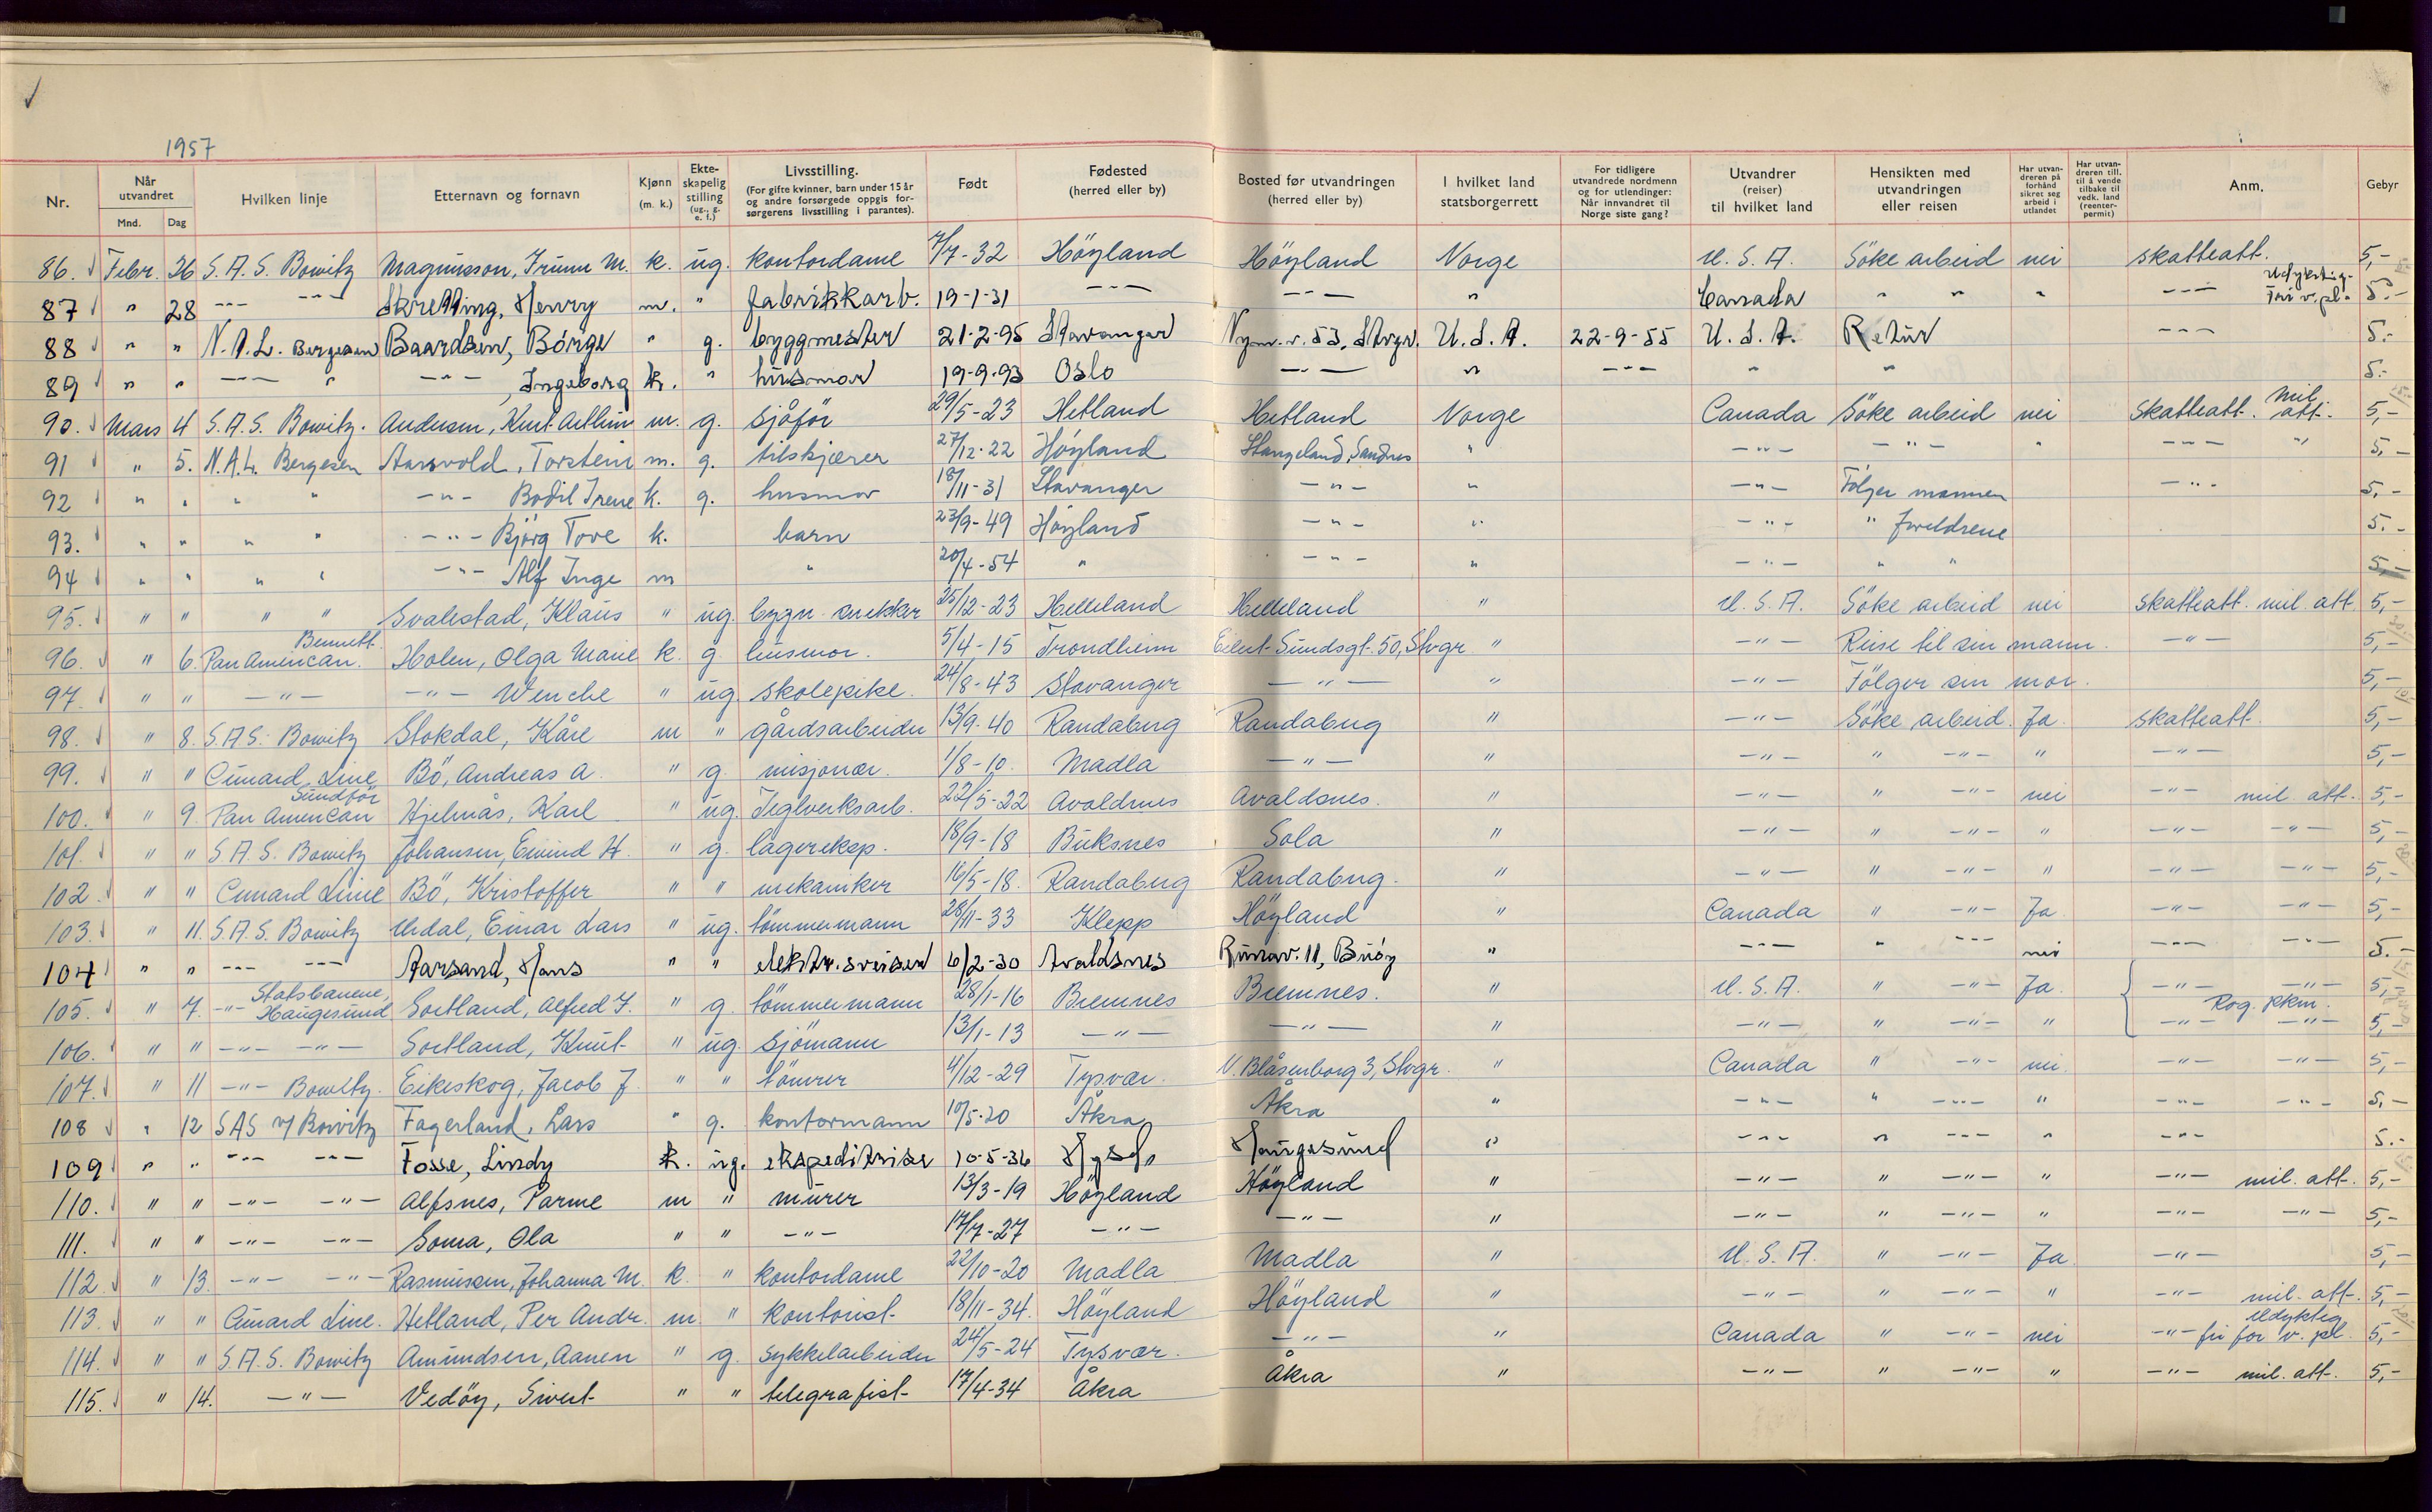 1957
Nr. Når utvandret Mnd. Dag Hvilken linje Etternavn og fornavn Kjønn (m. k.) Ekteskapelig stilling (ug., g. e. f.) Livsstilling. (For gifte kvinner, barn under 15 år og andre forsørgede oppgis forsørgerens livsstilling i parantes). Født Fødested (herred eller by) Bosted før utvandringen (herred eller by) I hvilket land statsborgerrett For tidligere utvandrede nordmenn og for utlendinger: Når innvandret til Norge siste gang? Utvandrer (reiser) til hvilket land Hensikten med utvandringen eller reisen Har utvandreren på forhånd sikret seg arbeid i utlandet Har utvandreren till. til å vende tilbake til vedk. land (reenterpermit) Anm. Gebyr
86. Febr. 26 S.A.S. Bowitz Magnusson, Trunn M. k. ug. kontordame 7/7-32 Höyland Höyland Norge U.S.A. Söke arbeid nei skatteatt. 5,-
87 " 28 -"- -"- Skretting, Henry m. " fabrikkarb. 19-1-31 -"- -"- " Canada " " " -"- Udyktig. Fri v.pl. 5.-
88 " " N.A.L. Bergesen Baardsen, Börge " g. byggmester 21-2-95 Stavanger Nym.v. 53, Stvgr. U.S.A. 22-9-55 U.S.A. Retur -"- 5.-
89 " " -"- " -"- , Ingeborg k. " husmor 19-9-93 Oslo -"- " -"- " " 5.-
90. Mars 4 S.A.S. Bowitz. Andersen, Knut Arthur m. g. sjåför 29/5-23 Hetland Hetland Norge Canada Söke arbeid nei skatteatt. mil. att. 5,-
91 " 5. N.A.L. Bergesen Aarsvold, Torstein m. g. tilskjærer 27/12-22 Höyland Stangeland, Sandnes " -"- -"- " -"- " 5,-
92 " " " " -"- Bodil Irene k. g. husmor 18/11-31 Stavanger -"- " -"- Følger mannen -"- 5,-
93. " " " " -"- Bjørg Tove k. barn 23/9-49 Höyland -"- " -"- " foreldrene 5.-
94 " " " " -"- Alf Inge m " 20/4-54 " -"- " -"- " " 5,-
95. " " " " Svalestad, Klaus " ug. bygn. snekker 25/12-23 Helleland Helleland " U.S.A. Söke arbeid nei skatteatt. mil. att 5,-
96. " 6. Pan American. Bennett. Holen, Olga Marie k. g. husmor. 5/4-15 Trondheim Eilert Sundsgt. 50, Stvgr. " -"- Reise til sin mann. -"- 5,-
97. " " -"- -"- Wenche " ug. skolepike. 24/8-43 Stavanger -"- " -"- Fölger sin mor. 5,-
98. " 8. S.A.S. Bowitz Stokdal, Kåre m " gårdsarbeider 13/9-40 Randaberg Randaberg " -"- Söke arbeid. Ja. skatteatt. 5,-
99. " " Cunard Line Bö, Andreas A. " g. misjonær. 1/8-10. Madla -"- " -"- " -"- " -"- 5,-
100. " 9. Pan American Sundför Hjelmås, Karl " ug. Teglverksarb. 22/5-22 Avaldsnes Avaldsnes. " -"- " -"- nei -"- mil. att. 5,-
101. " " S.A.S. Bowitz Johansen, Eivind H. " g. lagereksp. 18/9-18 Buksnes Sola " -"- " -"- " -"- -"- 5,-
102. " " Cunard Line Bö, Kristoffer " " mekaniker 16/5-18. Randaberg Randaberg. " -"- " -"- " -"- -"- 5,-
103. " 11. S.A.S. Bowitz Urdal, Einar Lars " ug. tömmermann 28/11-33 Klepp Höyland " Canada " -"- Ja -"- -"- 5,-
104 " " -"- -"- Aarsand, Hans " " elektr. sveiser 6/2-30 Avaldsnes Runav. 11, Buöy " -"- " -"- nei -"- -"- 5.-
105. " 7. -"- Statsbanene, Haugesund Sortland, Alfred J. " g. tömmermann 28/1-16 Bremnes Bremnes. " U.S.A. " -"- Ja. -"- -"- 5,-
Rog. pkm.
106. " " -"- -"- Sortland, Knut " ug. sjömann 13/1-13 -"- -"- " -"- " -"- " -"- -"- 5,-
107. " 11 -"- Bowitz. Eikeskog, Jacob J. " " tömrer 4/12-29 Tysvær. V. Blåsenborg 3, Stvgr. " Canada " -"- nei. -"- -"- 5,-
108 " 12 SAS v/ Bowitz Fagerland, Lars " g. kontormann 10/5-20 Åkra Åkra " -"- " -"- " -"- -"- 5,-
109 " " -"- -"- Fosse, Lindy k. ug. ekspeditrise 10-5-36 Haugesund " -"- " -"- " -"- 5.-
110. " " -"- -"- Alfsnes, Parme m " murer 13/3-19 Höyland Höyland " -"- " -"- " -"- mil. att. 5,-
111. " " -"- -"- Soma, Ola " " -"- 17/7-27 -"- -"- " -"- " -"- " -"- -"- 5,-
112. " 13. -"- -"- Rasmussen, Johanna M. k. " kontordame 22/10-20 Madla Madla " U.S.A. " -"- Ja -"- 5,-
113. " " Cunard Line. Hetland, Per Andr. m. " kontorist 18/11-34. Höyland Höyland " -"- " -"- " -"- mil. att. 5,-
114. " " S.A.S. Bowitz Amundsen, Aanen " g. sykkelarbeider 24/5-24 Tysvær. -"- " Canada " -"- nei -"- Udyktig fri for v. pl. 5,-
115. " 14. -"- Vedöy, Sivert " " telegrafist 17/4-34 Åkra Åkra " -"- " -"- " -"- mil. att. 5,-